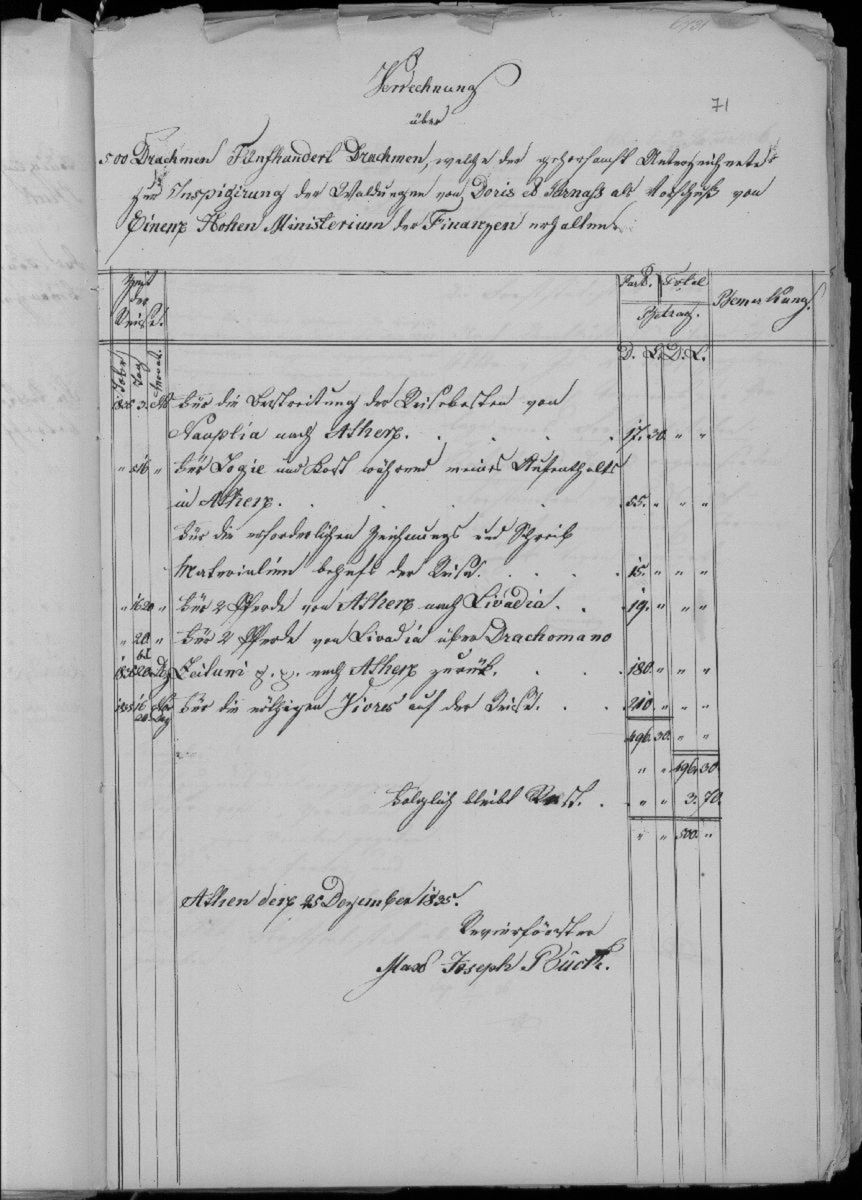 71
Verrechnung
über
500 Drachmen Fünfhundert Drachmen, welche der gehorsamst Unterzeichnete
zur Inspizirung der Waldungen von Doris & Parnass als Vorschuß von
Einem Hohen Ministerium der Finanzen erhalten.
Zeit der Reise. Part. Total Betrag. Bemerkung.
Jahr Tag Monat. D. L. D. L.
1835 3. Für die Bestreitung der Reisekosten von
Nauplia nach Athen. 17. 30. " "
" " Für Logie und Kost während meines Aufenthalts
in Athen. 55. " " "
Für die erforderlichen Zeichnungs und Schreib
Materialien behufs der Reise. 15. " " "
" 16 20 " Für 2 Pferde von Athen nach Livadia. 19. " " "
" 20. " Für 2 Pferde von Livadia über Drachomano
1835 20. Dez Zeituni p. p. nach Athen zurük. 180. " " "
1835 16 20. Dez Für die nöthigen Vivres auf der Reise. 210 " " "
496. 30. " "
" " 496. 30.
Folglich bleibt Rest. " " 3. 70.
" " 500. "
Athen den 25 Dezember 1835.
Revierförster
Max Joseph Bück.